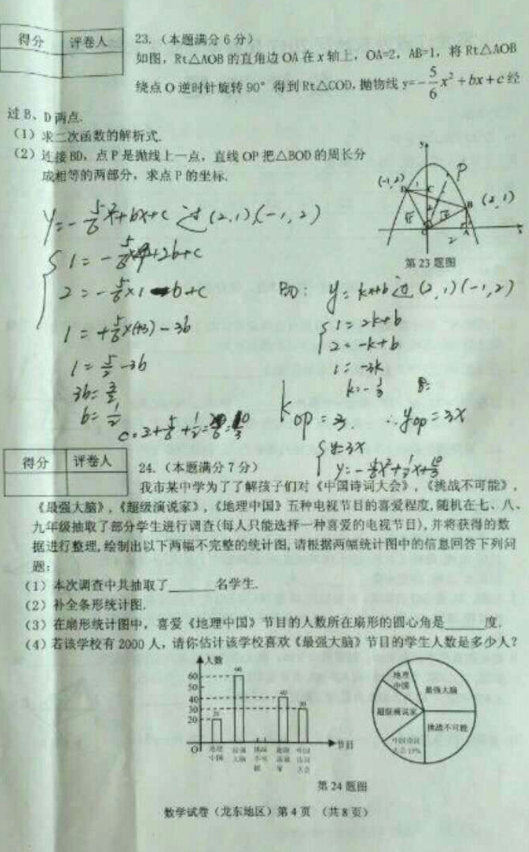 得分 评卷人
23.（本题满分6分）
如图，Rt△AOB的直角边OA在x轴上，OA=2，AB=1，将Rt△AOB
绕点O逆时针旋转90°得到Rt△COD，抛物线y=-5/6x²+bx+c经
过B、D两点.
（1）求二次函数的解析式.
（2）连接BD，点P是抛线上一点，直线OP把△BOD的周长分
成相等的两部分，求点P的坐标.
y
P
(-1,2)
D
C
B
(2,1)
A
x
2
第23题图
y=-5/6x²+bx+c 过(2,1)(-1,2)
2=-5/6×1-b+c
1=+5/6×(+3)-3b
1=5/2-3b
3b=3/2
b=1/2
BD: y=kx+b 过(2,1)(-1,2)
1=2k+b
2=-k+b
1=-3k
k=-1/3
kop=3 ∴yop=3x
y=3x
y=-5/6x²+1/2x+10/3
得分 评卷人
24.（本题满分7分）
我市某中学为了了解孩子们对《中国诗词大会》，《挑战不可能》，
《最强大脑》，《超级演说家》，《地理中国》五种电视节目的喜爱程度，随机在七、八、
九年级抽取了部分学生进行调查(每人只能选择一种喜爱的电视节目)，并将获得的数
据进行整理，绘制出以下两幅不完整的统计图，请根据两幅统计图中的信息回答下列问
题：
（1）本次调查中共抽取了______名学生.
（2）补全条形统计图.
（3）在扇形统计图中，喜爱《地理中国》节目的人数所在扇形的圆心角是____度.
（4）若该学校有2000人，请你估计该学校喜欢《最强大脑》节目的学生人数是多少人？
人数
60
50
40
30
20
O
20
60
40
30
地理中国
最强大脑
挑战不可能
超级演说家
中国诗词大会
节目
地理中国
最强大脑
超级演说家
挑战不可能
中国诗词大会15%
第24题图
数学试卷（龙东地区）第4页 （共8页）